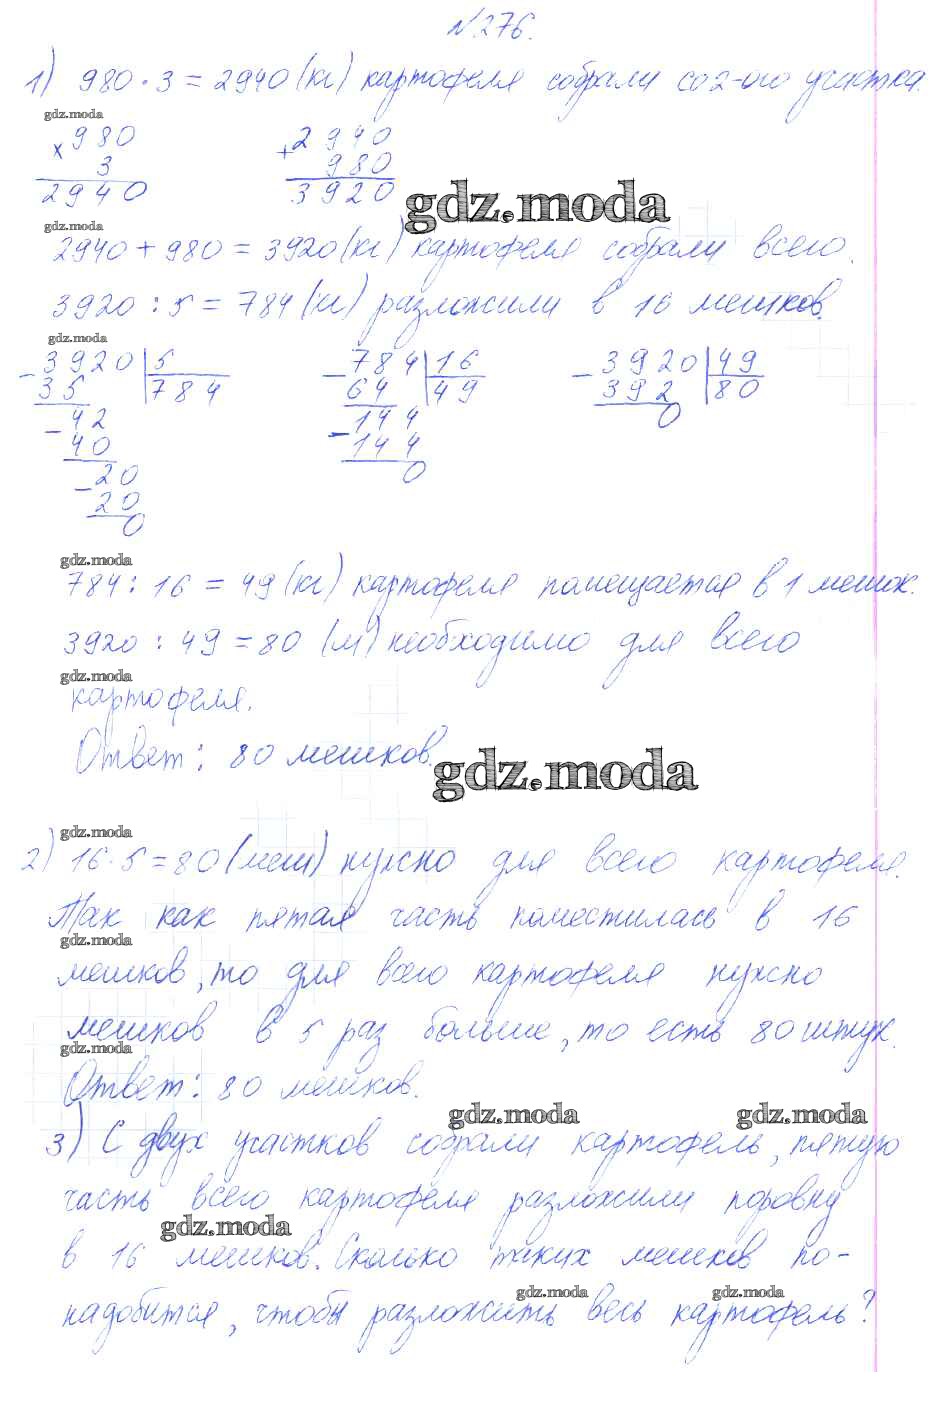 №276.
1) 980 · 3 = 2940 (кг) картофеля собрали со 2-ого участка.
gdz.moda
× 980 + 2940
3 980
2940 3920
gdz.moda
gdz.moda
2940 + 980 = 3920 (кг) картофеля собрали всего.
3920 : 5 = 784 (кг) разложили в 16 мешков.
gdz.moda
- 3920 5 - 784 16 - 3920 49
35 784 64 49 392 80
- 42 144 0
40 - 144
- 20 0
20
0
gdz.moda
784 : 16 = 49 (кг) картофеля помещается в 1 мешок.
3920 : 49 = 80 (м) необходимо для всего
gdz.moda
картофеля.
Ответ: 80 мешков.
gdz.moda
gdz.moda
2) 16 · 5 = 80 (меш) нужно для всего картофеля.
Так как пятая часть поместилась в 16
gdz.moda
мешков, то для всего картофеля нужно
мешков в 5 раз больше, то есть 80 штук.
gdz.moda
Ответ: 80 мешков.
gdz.moda gdz.moda
3) С двух участков собрали картофель, пятую
часть всего картофеля разложили поровну
gdz.moda
в 16 мешков. Сколько таких мешков по-
gdz.moda gdz.moda
надобится, чтобы разложить весь картофель?